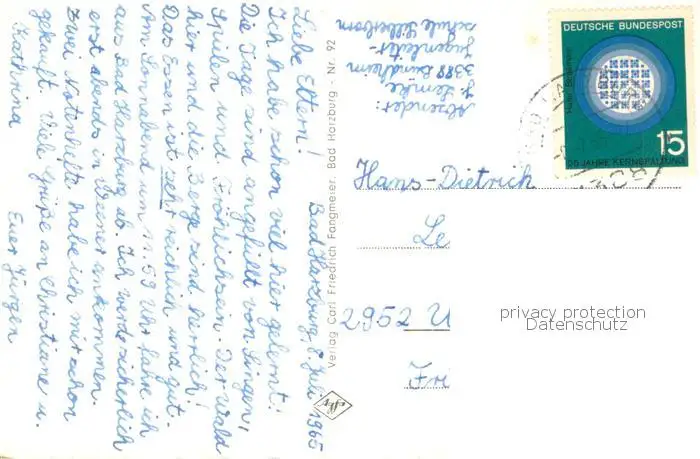 Bad Harzburg, 8. Juli 1965
Liebe Eltern!
Ich habe schon viel hier gelernt!
Die Tage sind angefüllt von Singen,
Spielen und Fröhlichsein. Der Wald
hier und die Berge sind herrlich!
Das Essen ist sehr reichlich und gut.
Am Sonnabend um 11.59 Uhr fahre ich
aus Bad Harzburg ab. Ich werde sicherlich
erst abends in Weener ankommen.
Zwei Notenhefte habe ich mir schon
gekauft. Viel Grüße an Christiane u.
Kathrina
Euer Jürgen
Verlag Carl Friedrich Fangmeier, Bad Harzburg - Nr. 92
Absender:
J. Lemke
3388 Bündheim
Jugenleiter-
schule Silberborn
DEUTSCHE BUNDESPOST
15
JAHRE KERNSPALTUNG
Hans-Dietrich
Le
2952 U
Fri
privacy protection
Datenschutz